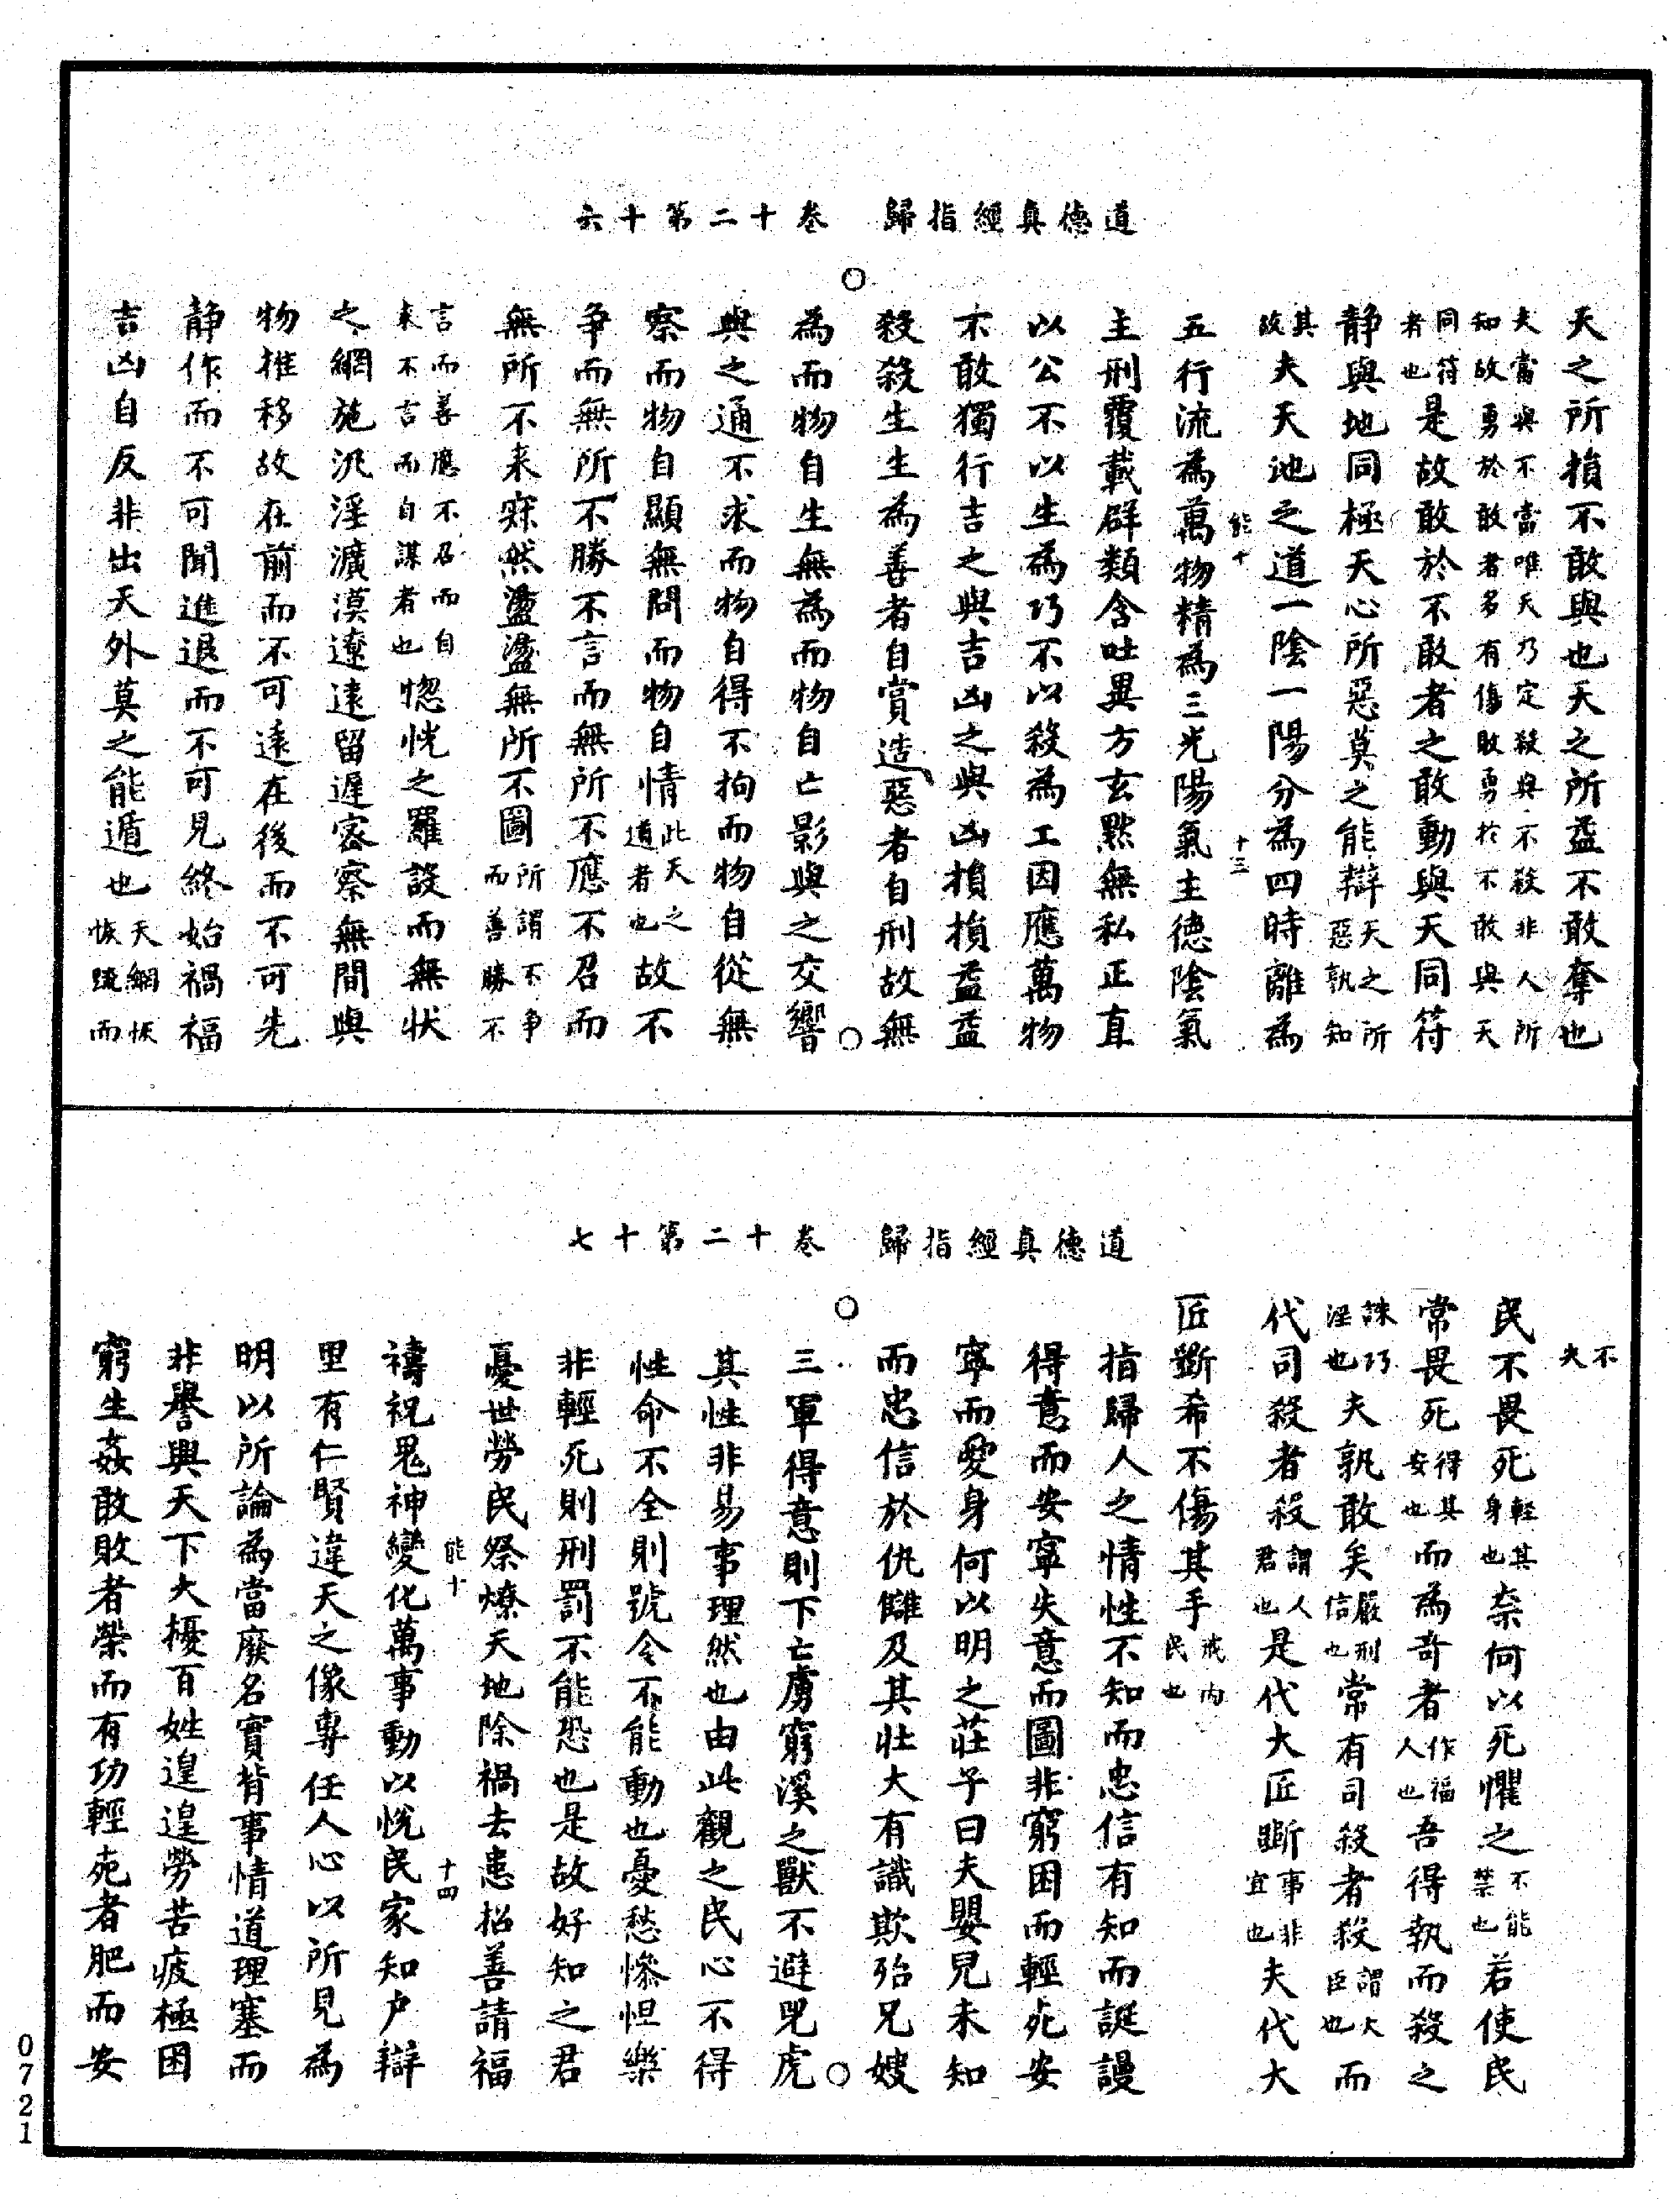 道德真經指歸　卷十二第十六
天之所損不敢與也天之所益不敢奪也
夫當與不當唯天乃定殺與不殺非人所
知故勇於敢者多有傷敗勇於不敢與天
同符
者也
是故敢於不敢者之敢動與天同符
靜與地同極天心所惡莫之能辯
天之所
惡孰知
其
故
夫天地之道一陰一陽分為四時離為
能十
十三
五行流為萬物精為三光陽氣主德陰氣
主刑覆載群類含吐異方玄默無私正直
以公不以生為巧不以殺為工因應萬物
不敢獨行吉之與吉凶之與凶損損益益
殺殺生生為善者自賞造惡者自刑故無
為而物自生無為而物自亡影與之交響
與之通不求而物自得不拘而物自從無
察而物自顯無問而物自情
此天之
道者也
故不
爭而無所不勝不言而無所不應不召而
無所不来寂然盪盪無所不圖
所謂不爭
而善勝不
言而善應不召而自
来不言而自謀者也
惚恍之羅設而無狀
之網施汎淫濔漠遼遠留遲密察無間與
物推移故在前而不可遠在後而不可先
靜作而不可聞進退而不可見終始禍福
吉凶自反非出天外莫之能遁也
天網恢
恢䟽而
道德真經指歸　卷十二第十七
不
失
民不畏死
輕其
身也
奈何以死懼之
不能
禁也
若使民
常畏死
得其
安也
而為奇者
作福
人也
吾得執而殺之
誅巧
淫也
夫孰敢矣
嚴刑
信也
常有司殺者殺
謂大
臣也
而
代司殺者殺
謂人
君也
是代大匠斲
事非
宜也
夫代大
匠斲希不傷其手
戒內
民也
指歸人之情性不知而忠信有知而誕謾
得意而安寧失意而圖非窮困而輕死安
寧而愛身何以明之莊子曰夫嬰兒未知
而忠信於仇讎及其壯大有識欺殆兄嫂
三軍得意則下亡虜窮溪之獸不避兕虎
其性非易事理然也由此觀之民心不得
性命不全則號令不能動也憂愁慘怛樂
非輕死則刑罰不能恐也是故好知之君
憂世勞民祭燎天地除禍去患招善請福
能十
十四
禱祝鬼神變化萬事動以悅民家知戶辯
里有仁賢違天之像專任人心以所見為
明以所論為當廢名實背事情道理塞而
非譽興天下大擾百姓遑遑勞苦疲極困
窮生姦敢敗者榮而有功輕死者肥而安
0721